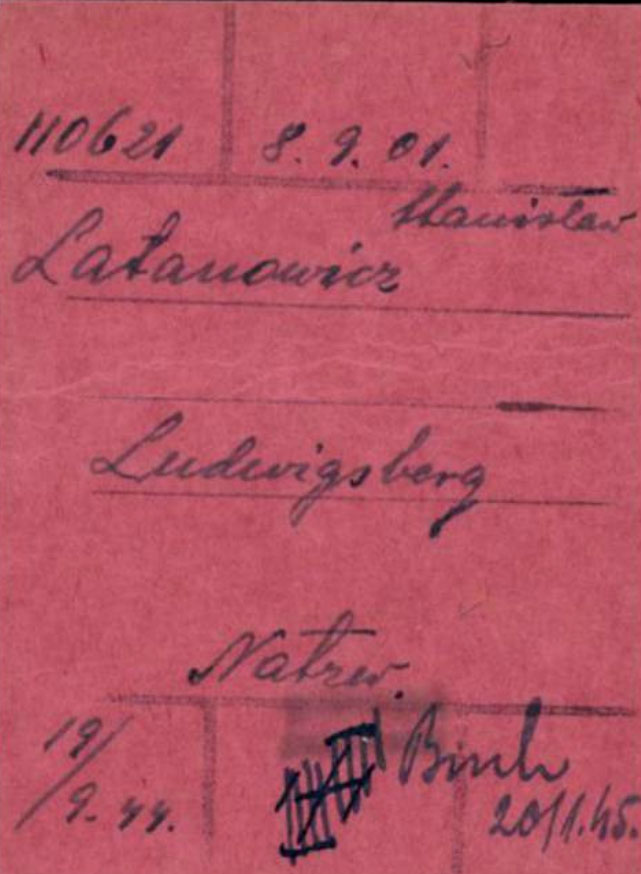 110621 8. 9. 01.
Stanisław
Latanowicz
Ludwigsberg
Natzw.
19/9. 44.
20/1.45.